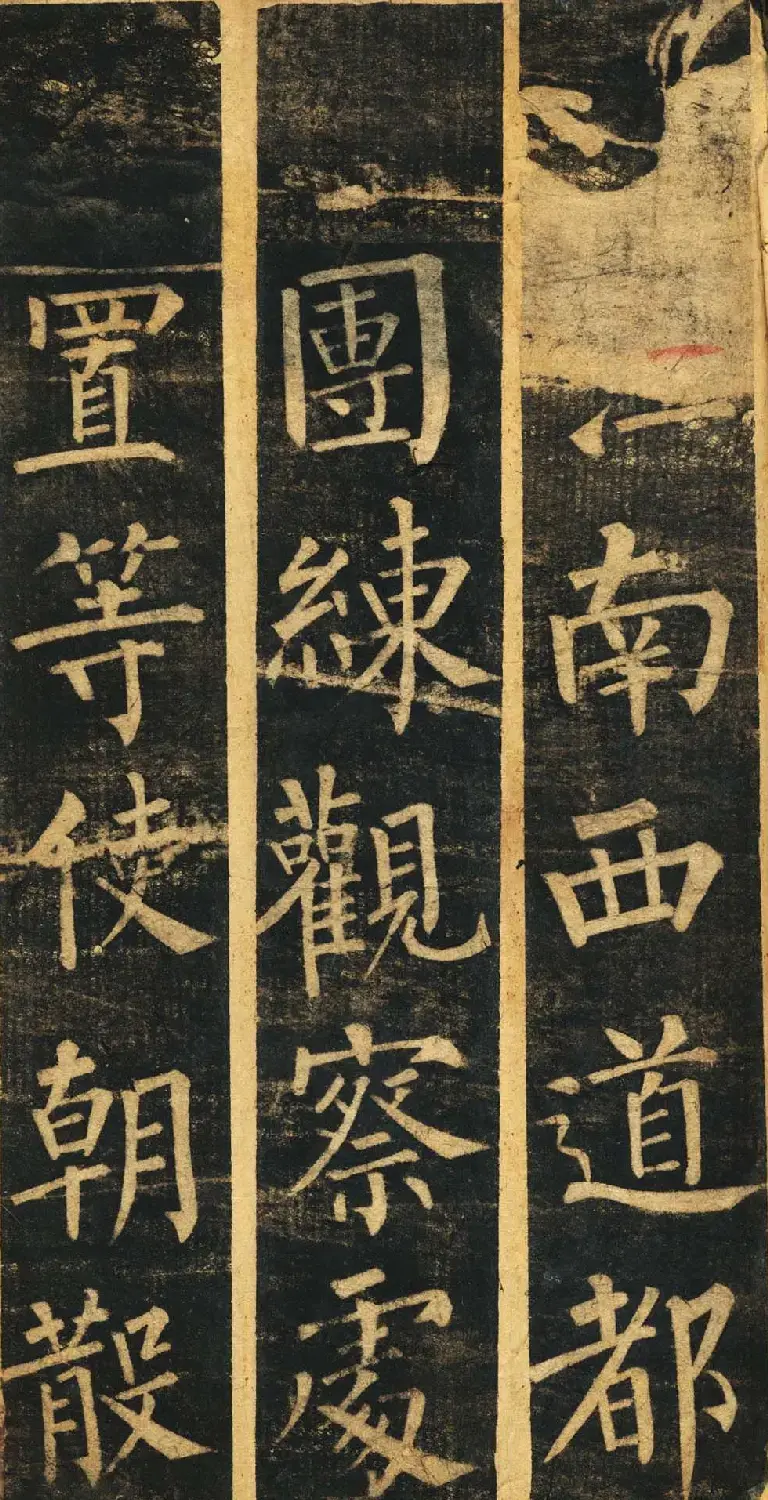 南西道都
團練觀察處
置等使朝散